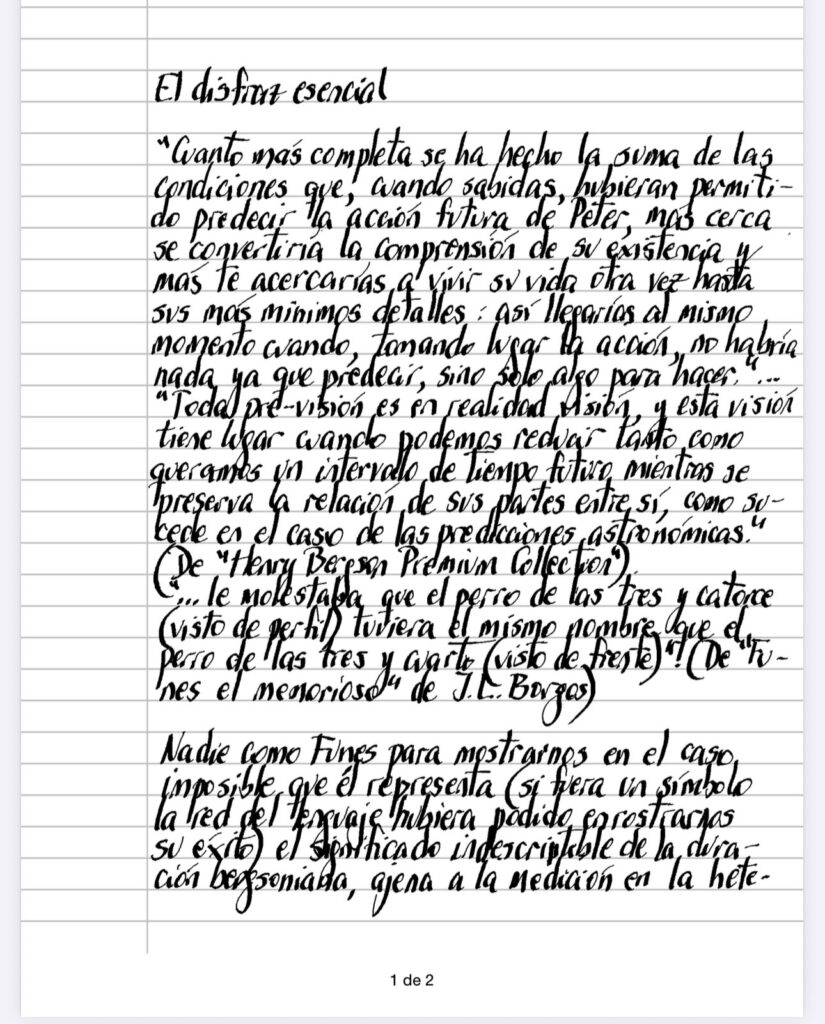 El disfraz esencial
"Cuanto más completa se ha hecho la suma de las
condiciones que, cuando sabidas, hubieran permiti-
do predecir la acción futura de Peter, más cerca
se convertiría la comprensión de su existencia y
más te acercarías a vivir su vida otra vez hasta
sus más mínimos detalles: así llegarías al mismo
momento cuando, tomando lugar la acción, no habría
nada ya que predecir, sino sólo algo para hacer."...
"Toda pre-visión es en realidad visión, y esta visión
tiene lugar cuando podemos reducir tanto como
queramos un intervalo de tiempo futuro mientras se
preserva la relación de sus partes entre sí, como su-
cede en el caso de las predicciones astronómicas."
(De "Henry Bergson Premium Collection")
"... le molestaba que el perro de las tres y catorce
(visto de perfil) tuviera el mismo nombre que el
perro de las tres y cuarto (visto de frente)"! (De "Fu-
nes el memorioso" de J.L. Borges)
Nadie como Funes para mostrarnos en el caso
imposible que él representa (si fuera un símbolo
la red del lenguaje hubiera podido enrostrarnos
su éxito) el significado indescriptible de la dura-
ción bergsoniana, ajena a la medición en la hete-
1 de 2